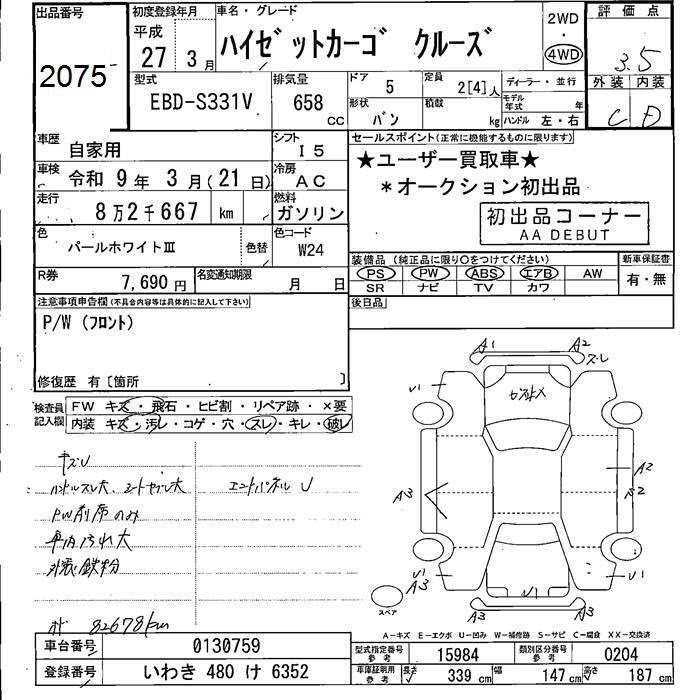 出品番号
2075
初度登録年月
平成
27年 3月
車名・グレード
ハイゼットカーゴ クルーズ
2WD
・
4WD
評価点
3.5
外装 内装
C D
型式
EBD-S331V
排気量
658 CC
ドア 5
定員 2[4]人
形状 バン
積載 kg
ディーラー・並行
モデル年式 年
ハンドル 左・右
車歴
自家用
シフト
I 5
車検 令和 9年 3月(21日)
冷房
AC
走行
8万2千667 km
燃料
ガソリン
色
パールホワイトⅢ
色替
色コード
W24
R券
7,690円
名変通知期限
月 日
セールスポイント(正常に機能するものに限ります)
★ユーザー買取車★
*オークション初出品
初出品コーナー
AA DEBUT
装備品(純正品に限り○をつけてください)
新車保証書
PS PW ABS エアB AW
SR ナビ TV カワ
有・無
後日品
注意事項申告欄(不具合内容等は具体的に記入して下さい)
P/W (フロント)
修復歴 有〔箇所 〕
検査員記入欄
FW キズ・飛石・ヒビ割・リペア跡・×要
内装 キズ・汚レ・コゲ・穴・スレ・キレ・破レ
キズU
ハンドルスレ大、シートヤブレ大
エンドパネル U
PW前席のみ
車内汚れ大
外装鉄粉
82678km
A1
A2
ズレ
U1
A3
A2
U1
A3
U1
A3
スペア
A－キズ E－エクボ U－凹み W－補修跡 S－サビ C－腐食 XX－交換済
車台番号 0130759
登録番号 いわき 480 け 6352
型式指定番号 参考 15984
類別区分番号 参考 0204
車庫証明用 参考
長さ 339 cm
幅 147 cm
高さ 187 cm